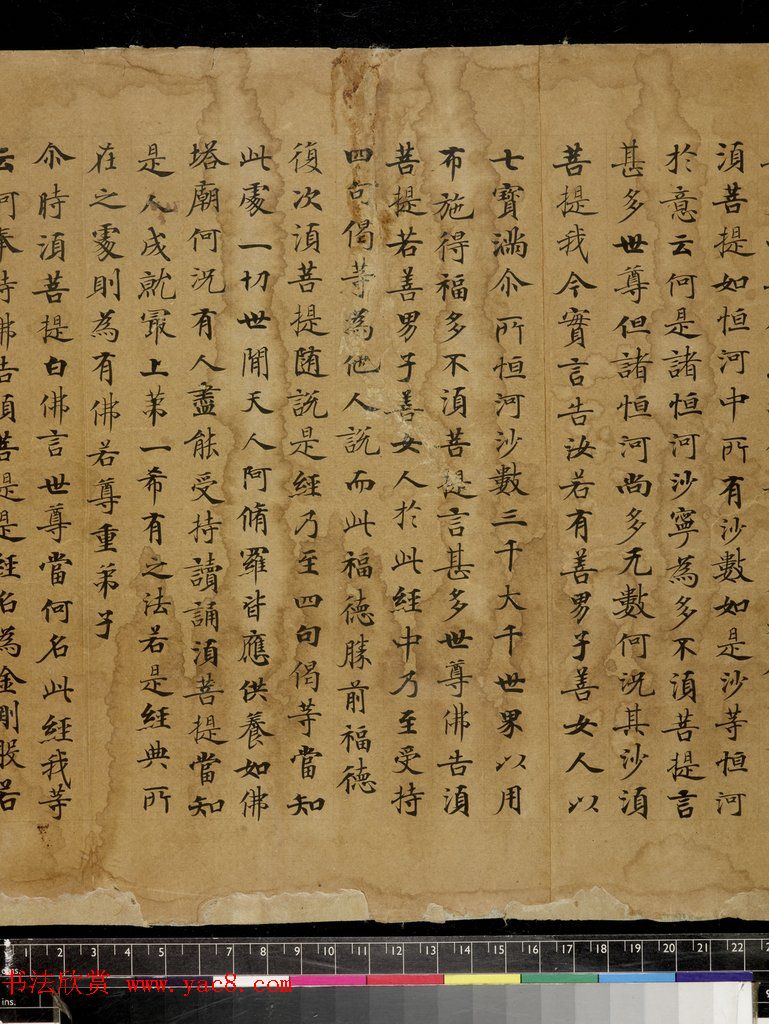 須菩提如恒河中所有沙數如是沙等恒河
於意云何是諸恒河沙寧為多不須菩提言
甚多世尊但諸恒河尚多无數何況其沙須
菩提我今實言告汝若有善男子善女人以
七寶滿尒所恒河沙數三千大千世界以用
布施得福多不須菩提言甚多世尊佛告須
菩提若善男子善女人於此經中乃至受持
四句偈等為他人說而此福德勝前福德
復次須菩提隨說是經乃至四句偈等當知
此處一切世間天人阿脩羅皆應供養如佛
塔廟何況有人盡能受持讀誦須菩提當知
是人成就冣上苐一希有之法若是經典所
在之處則為有佛若尊重弟子
尒時須菩提白佛言世尊當何名此經我等
云何奉持佛告須菩提是經名為金剛般若
cms. 1 2 3 4 5 7 8 9 10 11 12 13 14 15 16 17 18 19 20 21 22
书法欣赏 www.yac8.com
ins.